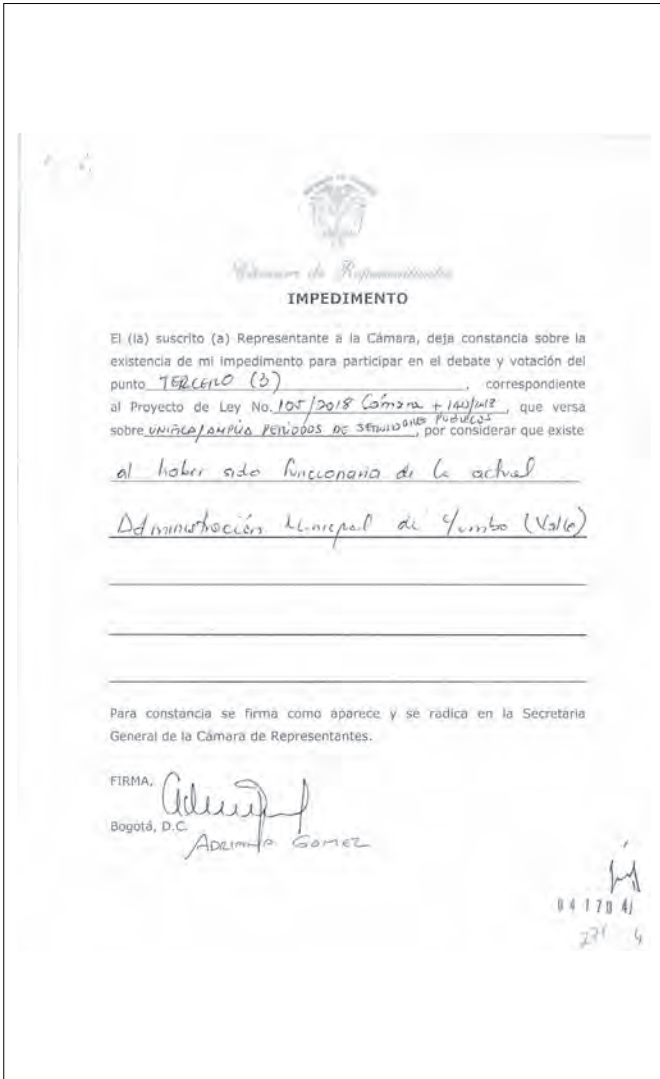 Cámara de Representantes
IMPEDIMENTO
El (la) suscrito (a) Representante a la Cámara, deja constancia sobre la
existencia de mi impedimento para participar en el debate y votación del
punto TERCERO (3), correspondiente
al Proyecto de Ley No. 105/2018 Cámara + 140/2018, que versa
sobre UNIFICA/AMPLÍA PERÍODOS DE SERVIDORES PUBLICOS, por considerar que existe
al haber sido funcionaria de la actual
Administración Municipal de Yumbo (Valle)
Para constancia se firma como aparece y se radica en la Secretaria
General de la Cámara de Representantes.
FIRMA,
Bogotá, D.C.
ADRIANA GOMEZ